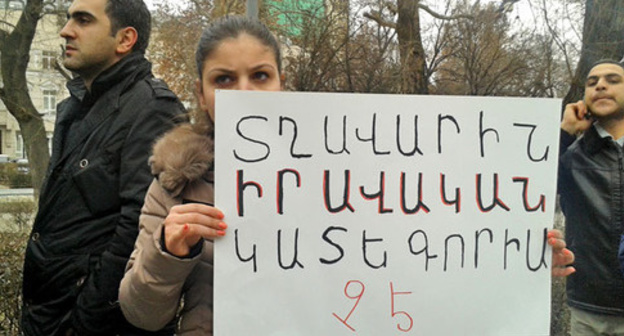 ՏՂԱՎԱՐԻՆ
ԻՐԱՎԱԿԱՆ
ԿԱՏԵԳՈՐԻԱ
ՉԷ